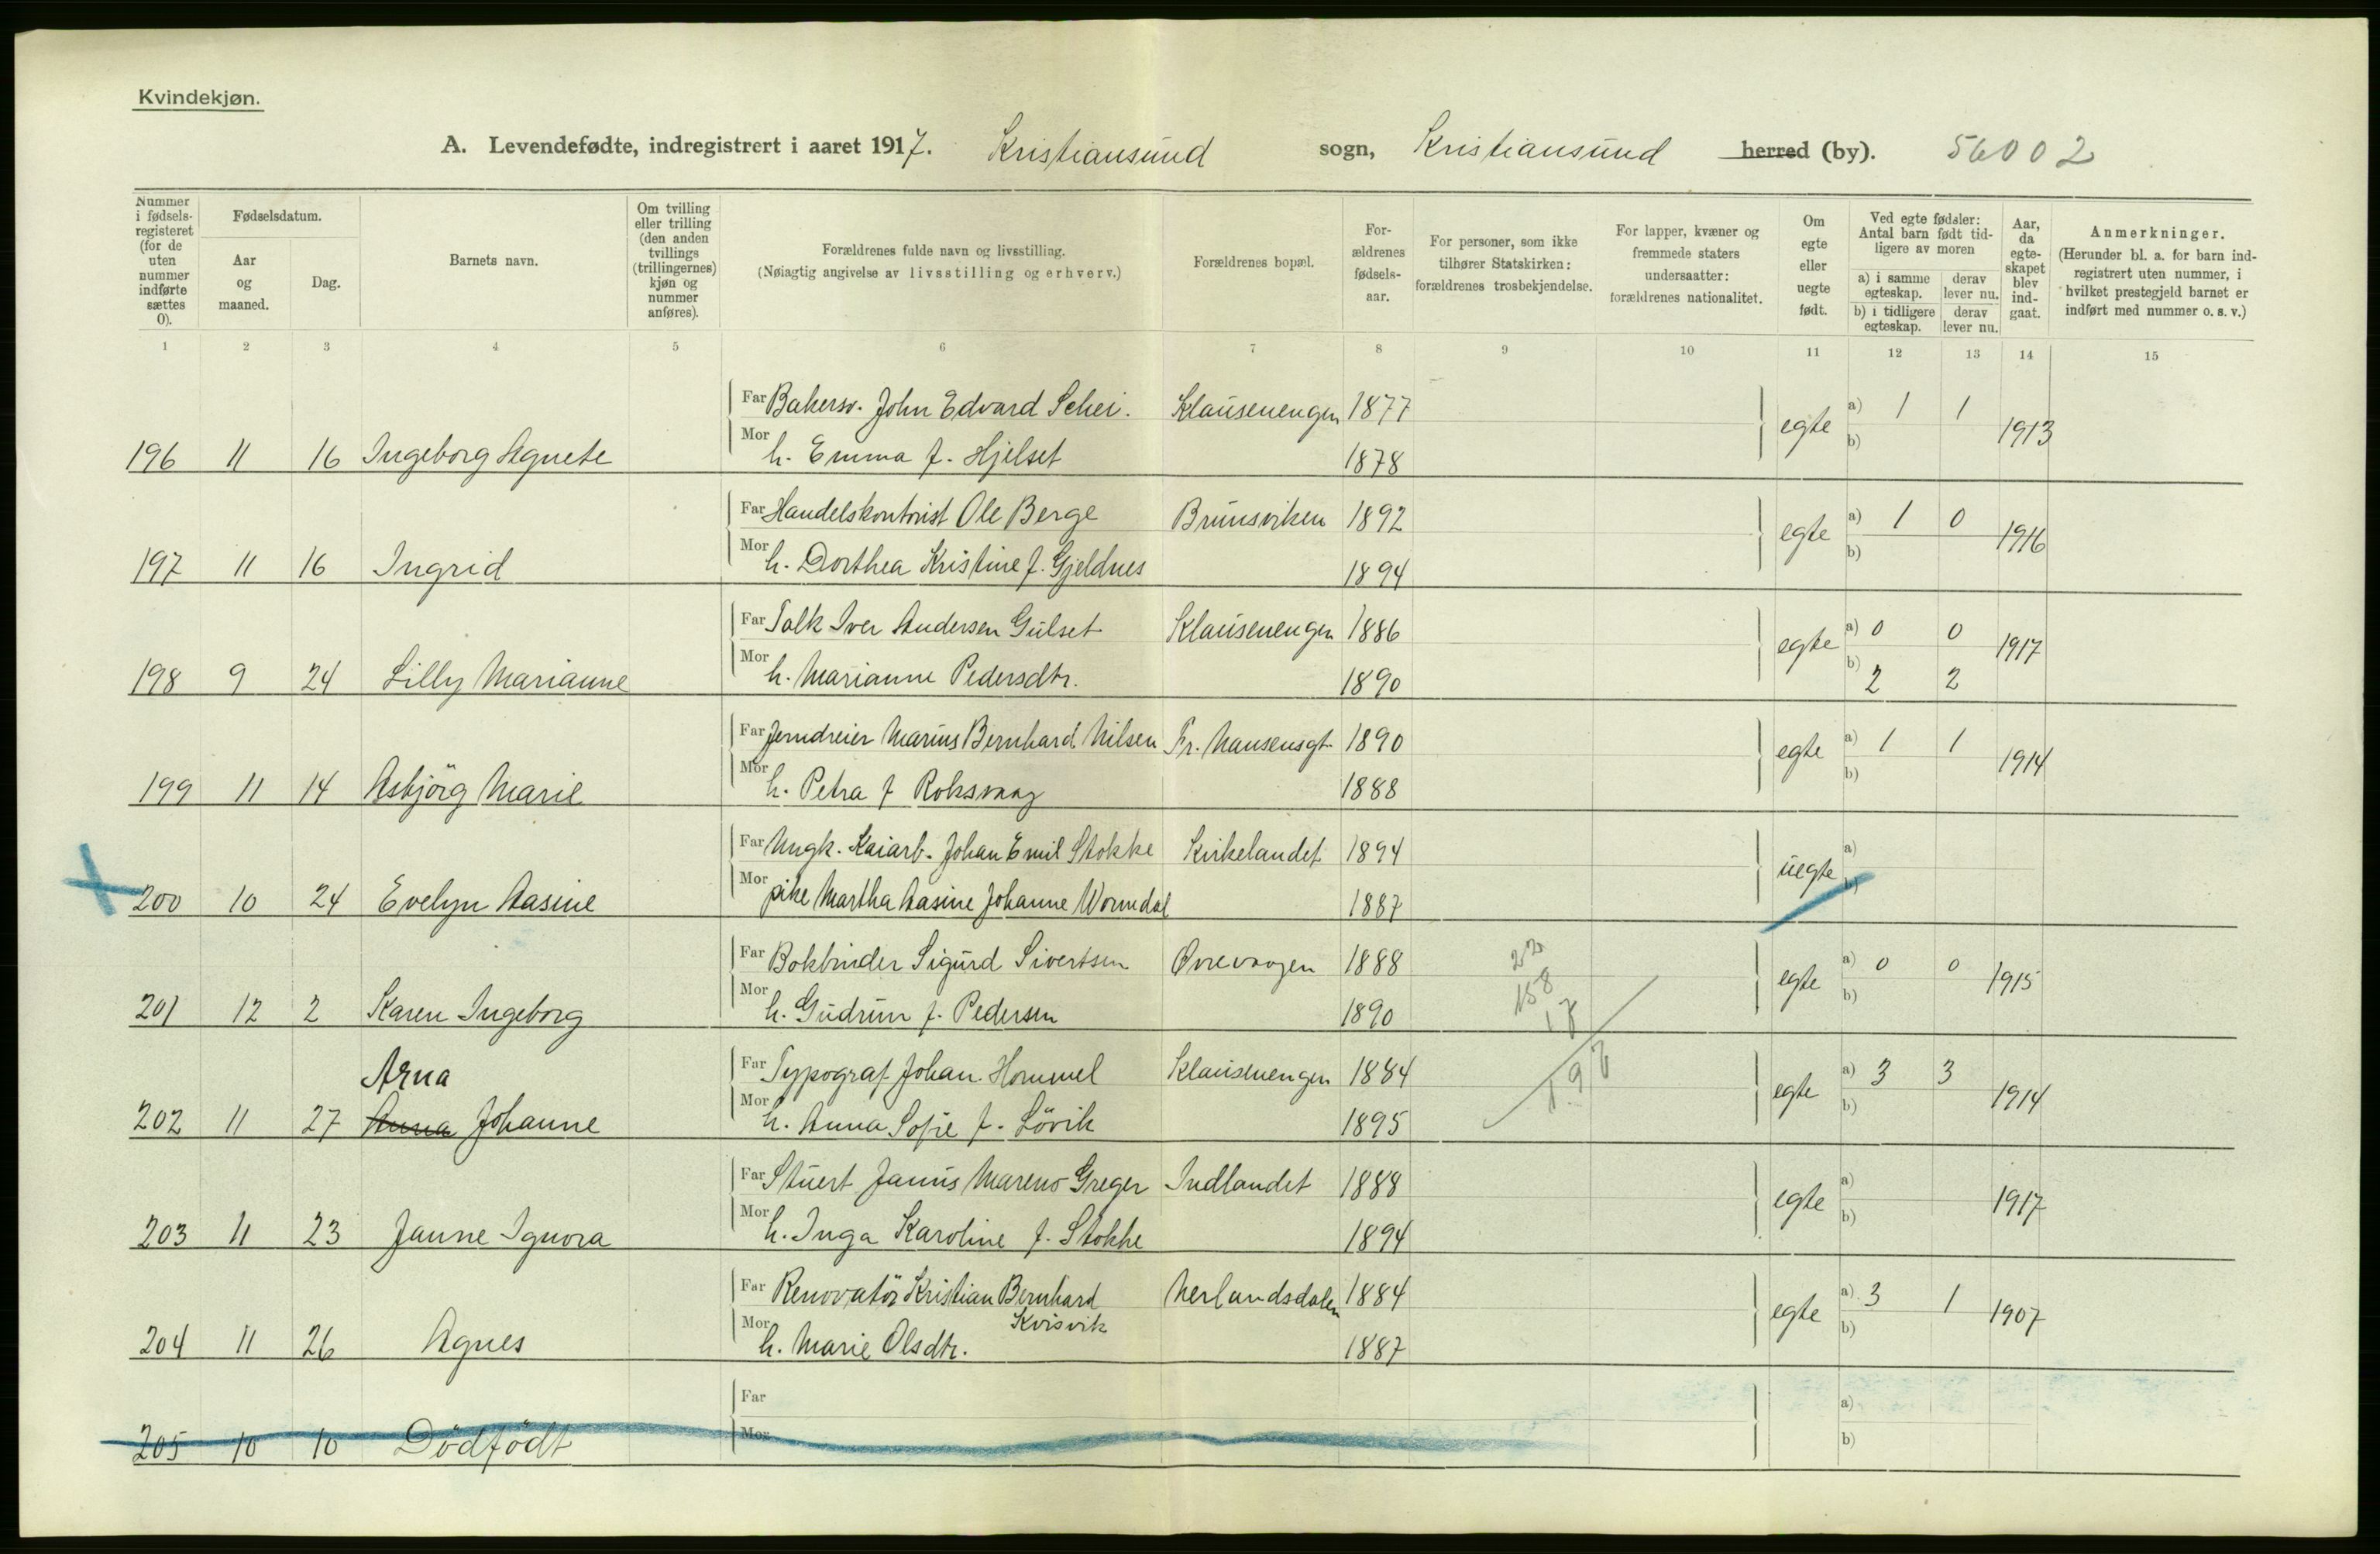 Kvindekjøn.
A. Levendefødte, indregistrert i aaret 1917. Kristiansund sogn, Kristiansund herred (by). 56002
Nummer i fødselsregisteret (for de uten nummer indførte sættes 0).
Fødselsdatum.
Aar og maaned.
Dag.
Barnets navn.
Om tvilling eller trilling (den anden tvillings (trillingernes) kjøn og nummer anføres).
Forældrenes fulde navn og livsstilling.
(Nøiagtig angivelse av livsstilling og erhverv.)
Forældrenes bopæl.
Forældrenes fødselsaar.
For personer, som ikke tilhører Statskirken: forældrenes trosbekjendelse.
For lapper, kvæner og fremmede staters undersaatter: forældrenes nationalitet.
Om egte eller uegte født.
Ved egte fødsler: Antal barn født tidligere av moren
a) i samme egteskap. derav lever nu.
b) i tidligere egteskap. derav lever nu.
Aar, da egteskapet blev indgaat.
Anmerkninger.
(Herunder bl. a. for barn indregistrert uten nummer, i hvilket prestegjeld barnet er indført med nummer o. s. v.)
1 2 3 4 5 6 7 8 9 10 11 12 13 14 15
Far Bakersv. John Edvard Schei. Klausenengen 1877 egte a) 1 1 1913
196 11 16 Ingeborg Agnete Mor h. Emma f. Hjelset 1878 b)
Far Handelskontorist Ole Berge Brunsviken 1892 egte a) 1 0 1916
197 11 16 Ingrid Mor h. Dorthea Kristine f. Gjeldnes 1894 b)
Far Tolk Iver Andersen Gulset Klausenengen 1886 egte a) 0 0 1917
198 9 24 Lilly Marianne Mor h. Marianne Pedersdtr. 1890 b) 2 2
Far Jerndreier Marius Bernhard Nilsen Fr. Nansensgt. 1890 egte a) 1 1 1914
199 11 14 Asbjörg Marie Mor h. Petra f Roksvaag 1888 b)
Far Ungk. Kaiarb. Johan Emil Stokke Kirkelandet 1894 uegte a)
200 10 24 Evelyn Aasine Mor pike Martha Aasine Johanne Wormdal 1887 b)
Far Bokbinder Sigurd Sivertsen Ørrevaagen 1888 22 egte a) 0 0 1915
201 12 2 Karen Ingeborg Mor h. Gudrun f. Pedersen 1890 158 17 b)
Arna Far Typograf Johan Hommel Klausenengen 1884 egte a) 3 3 1914
202 11 27 Anna Johanne Mor h. Anna Sofie f. Lövik 1895 b)
Far Stuert Janus Mareno Greger Indlandet 1888 egte a) 1917
203 11 23 Janne Ignora Mor h. Inga Karoline f. Stokke 1894 b)
Far Renovatör Kristian Bernhard Nerlandsdalen 1884 egte a) 3 1 1907
Kvisvik
204 11 26 Agnes Mor h. Marie Olsdtr. 1887 b)
Far a)
205 10 10 Dödfödt Mor b)